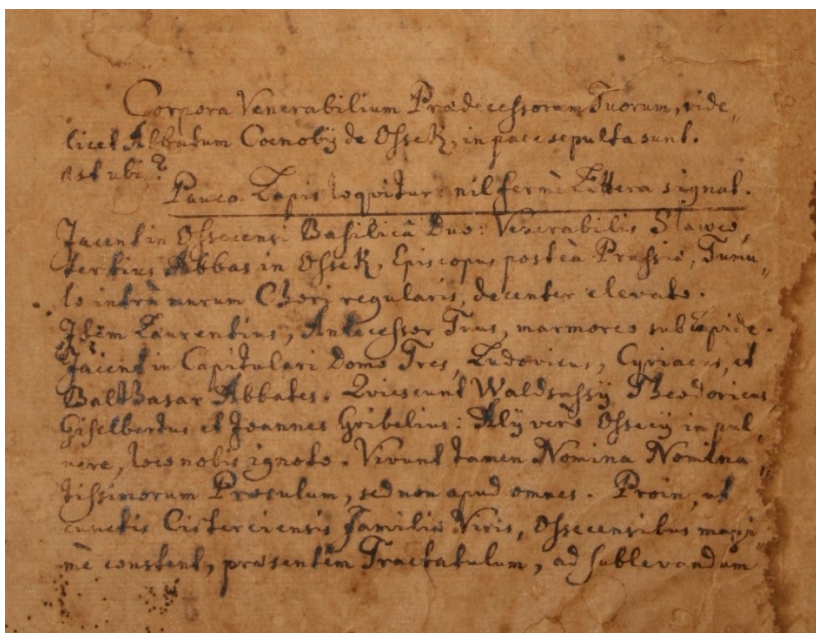 Corpora Venerabilium Prædecessorum Tuorum, vide„
licet Abbatum Coenobÿ de Ossek, in pace sepulta sunt.
ast ubi?
Pauca Lapis loquitur: nil fermè Littera signat.
Jacent in Ossecensi Basilicâ Duo: Venerabilis Slawco,
tertius Abbas in Ossek, Episcopus posteà Prussiæ, Tumu„
lo intrà murum Chori regularis, decenter elevato.
Item Laurentius, Antecessor Tuus, marmoreo sub Lapide.
Jacent in Capitulari Domo Tres, Ludovicus, Cyriacus, et
Balthasar Abbates. Qviescunt Waldsassÿ Theodoricus
Giselbertus et Joannes Gribelius: Alÿ verò Ossecÿ in pul„
vere, loco nobis ignoto. Vivunt tamen Nomina Nomina„
tissimorum Præsulum, sed non apud omnes. Proin, ut
cunctis Cisterciensis Familiæ Viris, Ossecensibus maxi„
mè constent, præsentem Tractatulum, ad sublevandum